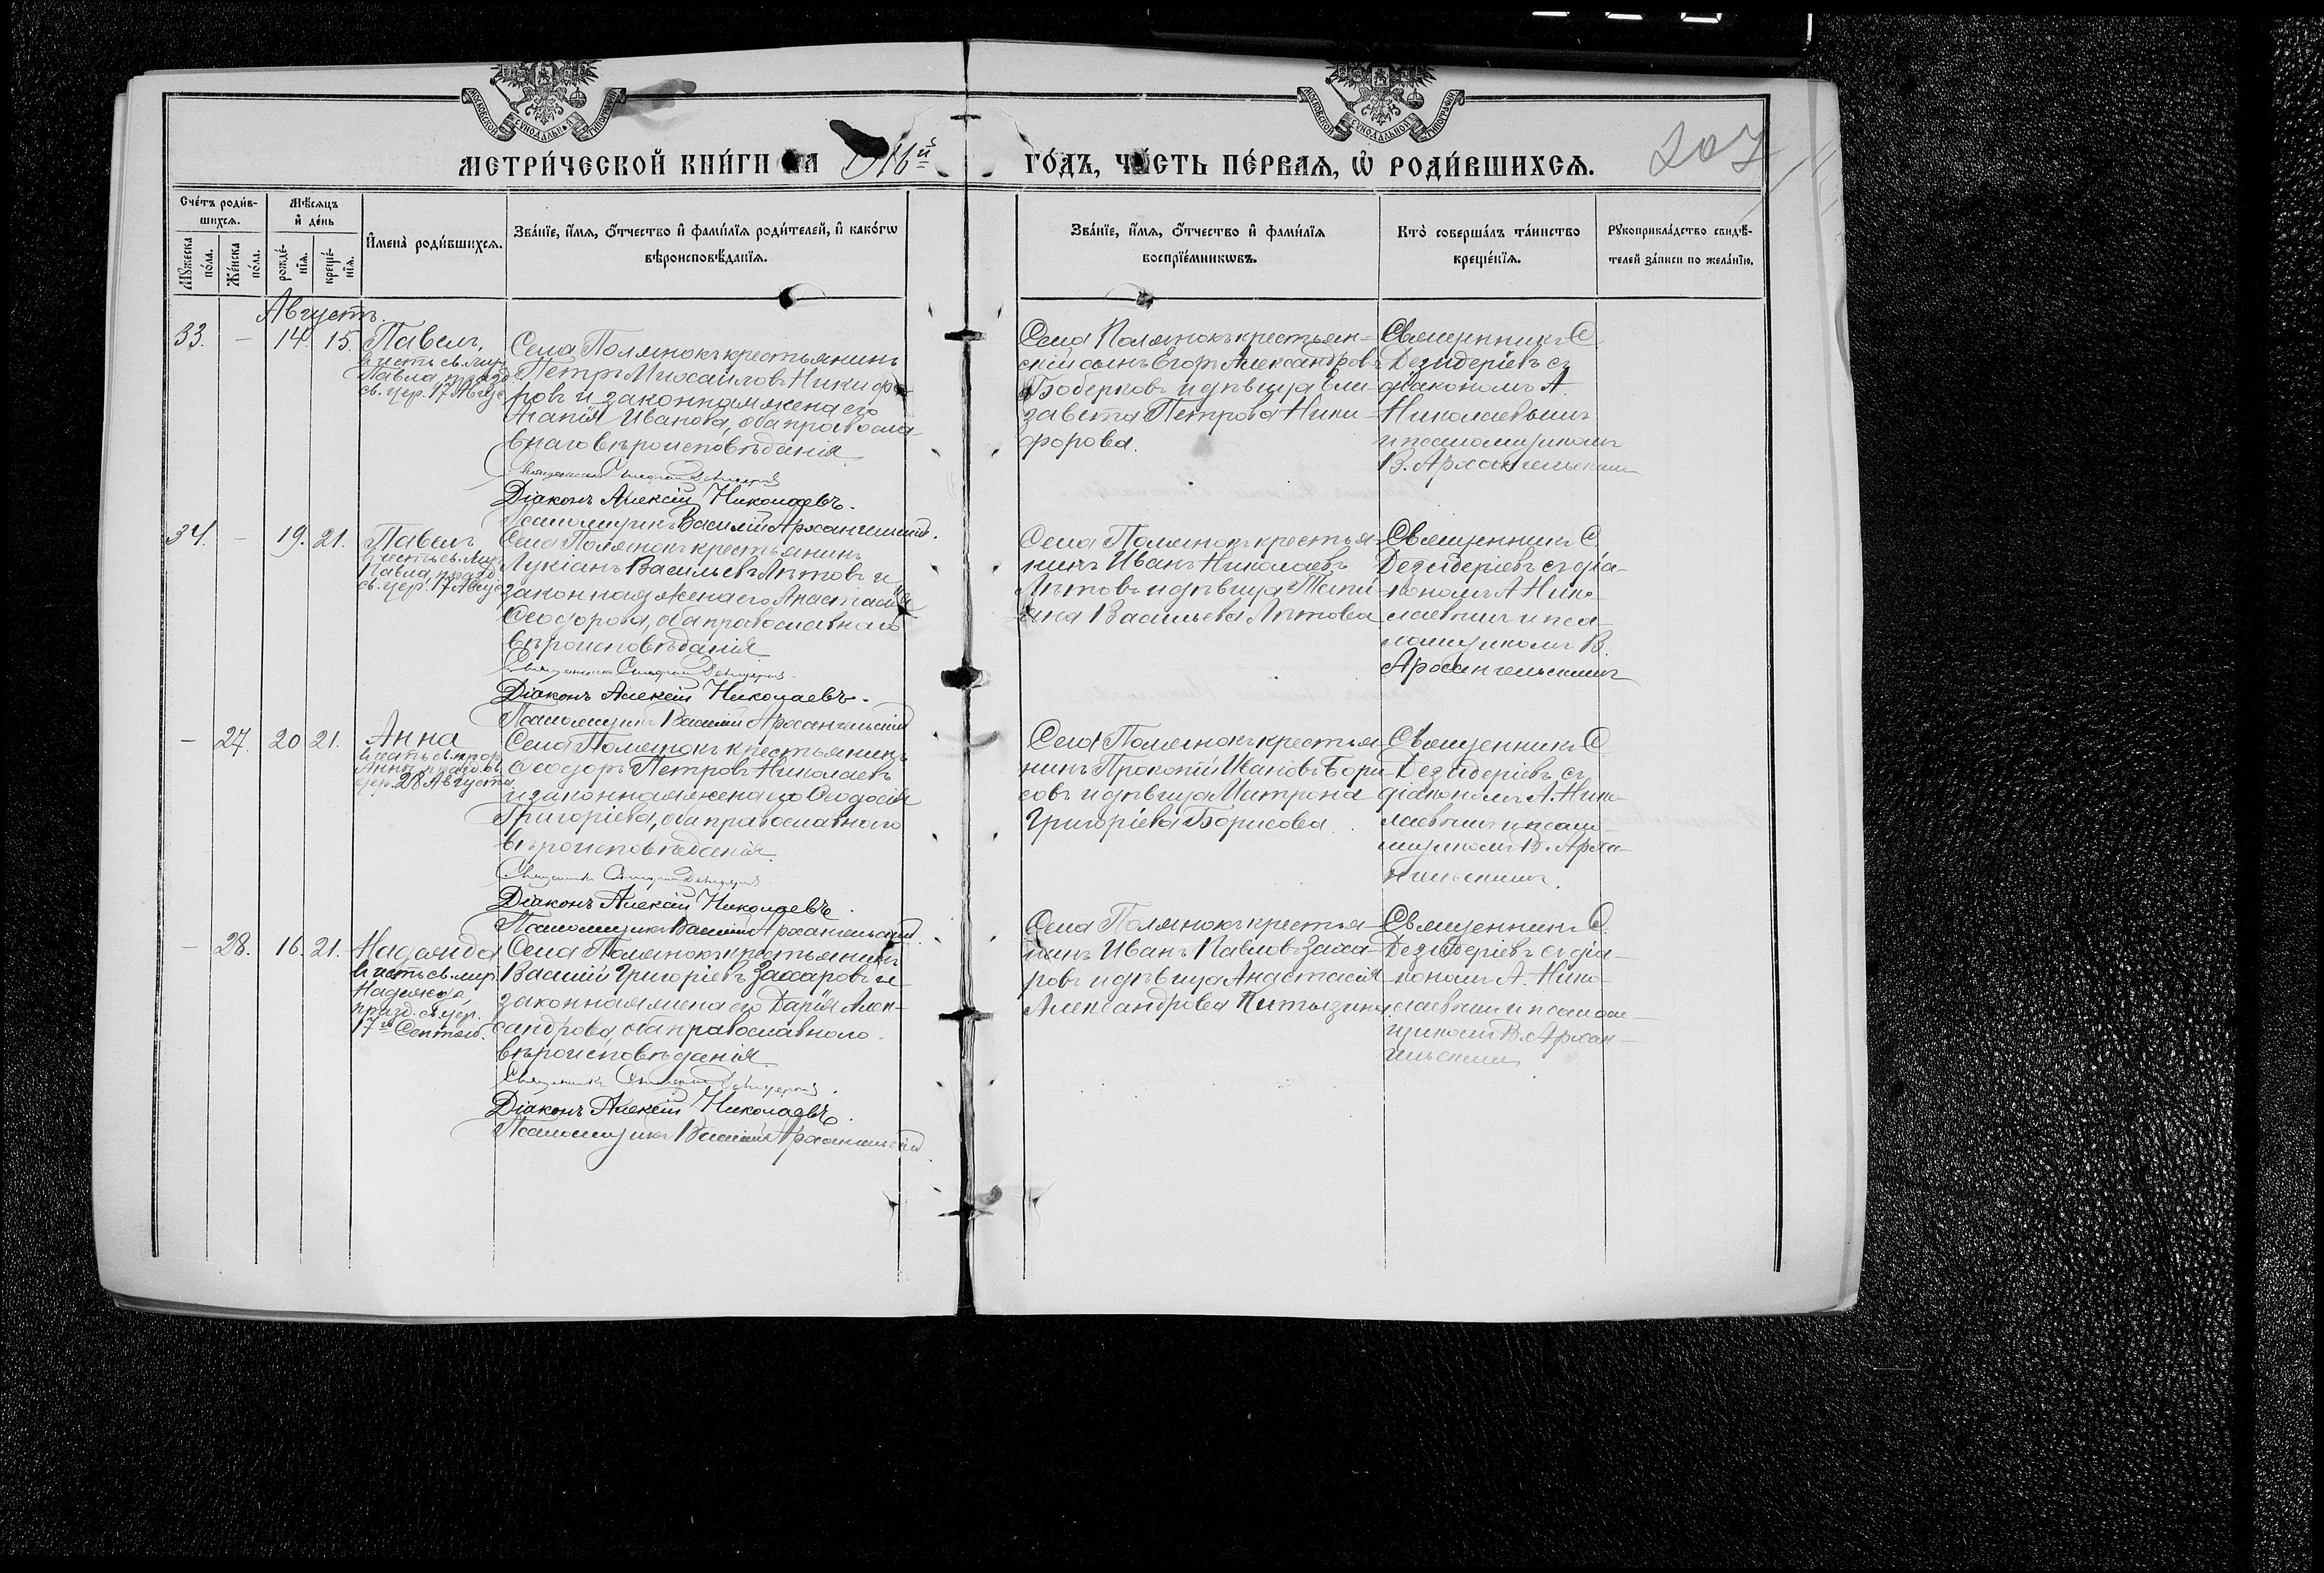 МОСКОВСКОЙ СУНОДАЛЬНОЙ ТИПОГРАФІИ
МОСКОВСКОЙ СУНОДАЛЬНОЙ ТИПОГРАФІИ
207
МЕТРИ́ЧЕСКОЙ КНИ́ГИ НА 1916й ГО́ДЪ, ЧА́СТЬ ПЕ́РВАЯ, Ѡ҆ РОДИ́ВШИХСЯ.
Сче́тъ роди́в-
шихся.
Мꙋ́жеска
по́ла.
Же́нска
по́ла.
Мѣ́сяцъ
и҆ де́нь
рожде́-
нїя.
креще́-
нїя.
И҆мена̀ роди́вшихся.
Зва́нїе, и҆́мя, ѻ҆́тчество и҆ фами́лїя роди́телей, и҆ како́гѡ
вѣроисповѣ́данїя.
Зва́нїе, и҆́мя, ѻ҆́тчество и҆ фами́лїя
воспрїе́мникѡвъ.
Кто̀ соверша́лъ та́инство
креще́нїя.
Рꙋкоприкла́дство свидѣ́-
телей за́писи по жела́нїю.
Августъ.
33. - 14. 15. Павелъ,
въ честь св. муч.
Павла, празд.
св. цер. 17 Авгус
Села Полянокъ крестьянинъ
Петръ Михаиловъ Никифо-
ровъ и законная жена его
Агапія Иванова, оба правосла-
внаго вѣроисповѣданія.
Діаконъ Алексій Николаевъ.
Псаломщикъ Василій Архангельскій.
Села Полянокъ крестьян-
скій сынъ Егоръ Александровъ
Боберковъ и дѣвица Ели-
завета Петрова Ники-
форова.
Священникъ С.
Дезидеріевъ съ
діакономъ А.
Николаевымъ
и псаломщикомъ
В. Архангельскимъ
34. - 19. 21. Павелъ
въ честь св. муч.
Павла, празд.
св. цер. 17 Авгус
Села Полянокъ крестьянинъ
Лукіанъ Васильевъ Лѣтовъ и
законная жена его Анастасія
Ѳеодорова, оба православнаго
вѣроисповѣданія
Діаконъ Алексій Николаевъ.
Псаломщикъ Василій Архангельскій
Села Полянокъ крестья-
нинъ Иванъ Николаевъ
Лѣтовъ и дѣвица Тати-
ана Васильева Лѣтова
Священникъ С.
Дезидеріевъ съ діа-
кономъ А. Нико-
лаевымъ и пса-
ломщикомъ В.
Архангельскимъ
- 27. 20 21. Анна
въ честь св. прор.
Анны, празд. св.
цер. 28 Августа.
Села Полянокъ крестьянинъ
Ѳеодоръ Петровъ Николаевъ
и законная жена его Ѳеодосія
Григоріева, оба православнаго
вѣроисповѣданія.
Діаконъ Алексій Николаевъ.
Псаломщикъ Василій Архангельскій.
Села Полянокъ крестья-
нинъ Прокопій Ивановъ Бори-
совъ и дѣвица Митрона
Григоріева Борисова.
Священникъ С.
Дезидеріевъ съ
діакономъ А. Нико-
лаевымъ и псало-
мщикомъ В. Арха-
нгельскимъ.
- 28. 16. 21. Надежда
въ честь св. муч.
Надежды,
празд. св. цер.
17го Сентяб.
Села Полянокъ крестьянинъ
Василій Григоріевъ Захаровъ и
законная жена его Дарія Алек-
сандрова, оба православнаго
вѣроисповѣданія
Діаконъ Алексій Николаевъ.
Псаломщикъ Василій Архангельскій.
Села Полянокъ крестья-
нинъ Иванъ Павловъ Заха-
ровъ и дѣвица Анастасія
Александрова Китызина
Священникъ С.
Дезидеріевъ съ діа-
кономъ А. Нико-
лаевымъ и псалом-
щикомъ В. Архан-
гельскимъ